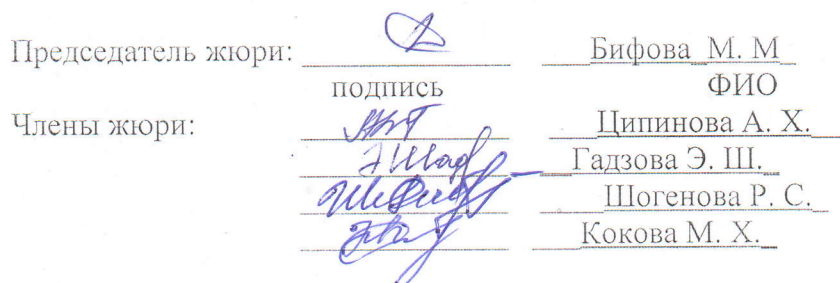 Председатель жюри: Бифова М. М
подпись ФИО
Члены жюри: Ципинова А. Х.
Гадзова Э. Ш.
Шогенова Р. С.
Кокова М. Х.